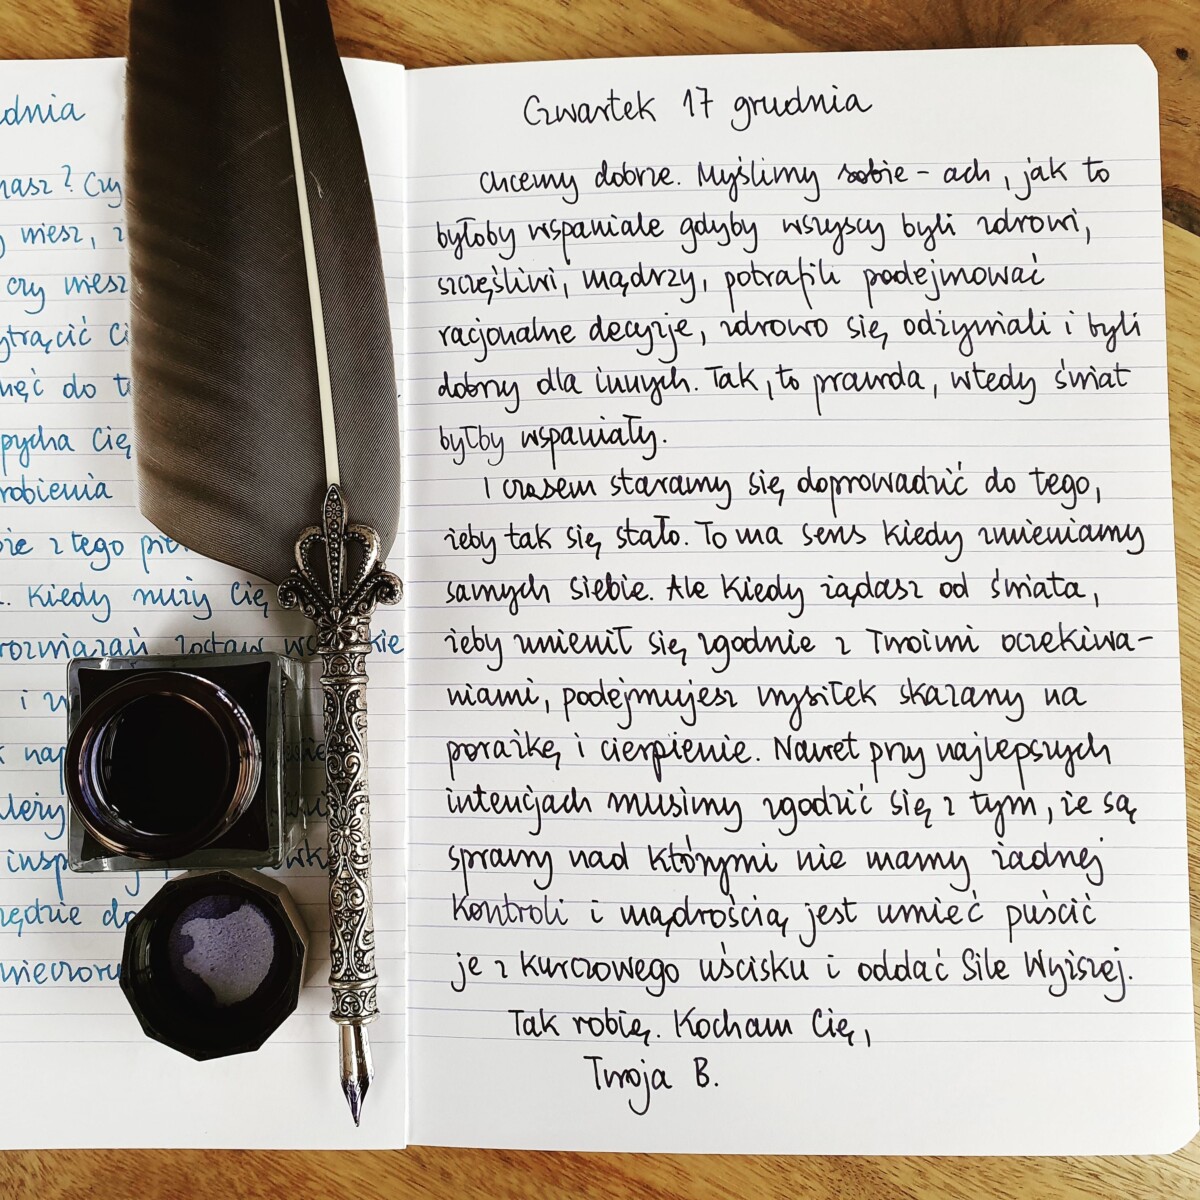 dnia
nasz? Czy
wiesz,
czy wiesz
do
pycha Cię
robienia
z tego
Kiedy nuży Cię
zostaw
i
Czwartek 17 grudnia
Chcemy dobrze. Myślimy sobie – ach, jak to
byłoby wspaniale gdyby wszyscy byli zdrowi,
szczęśliwi, mądrzy, potrafili podejmować
racjonalne decyzje, zdrowo się odżywiali i byli
dobrzy dla innych. Tak, to prawda, wtedy świat
byłby wspaniały.
I czasem staramy się doprowadzić do tego,
żeby tak się stało. To ma sens kiedy zmieniamy
samych siebie. Ale kiedy żądasz od świata,
żeby zmienił się zgodnie z Twoimi oczekiwa-
niami, podejmujesz wysiłek skazany na
porażkę i cierpienie. Nawet przy najlepszych
intencjach musimy zgodzić się z tym, że są
sprawy nad którymi nie mamy żadnej
kontroli i mądrością jest umieć puścić
je z kurczowego uścisku i oddać Sile Wyższej.
Tak robię. Kocham Cię,
Twoja B.